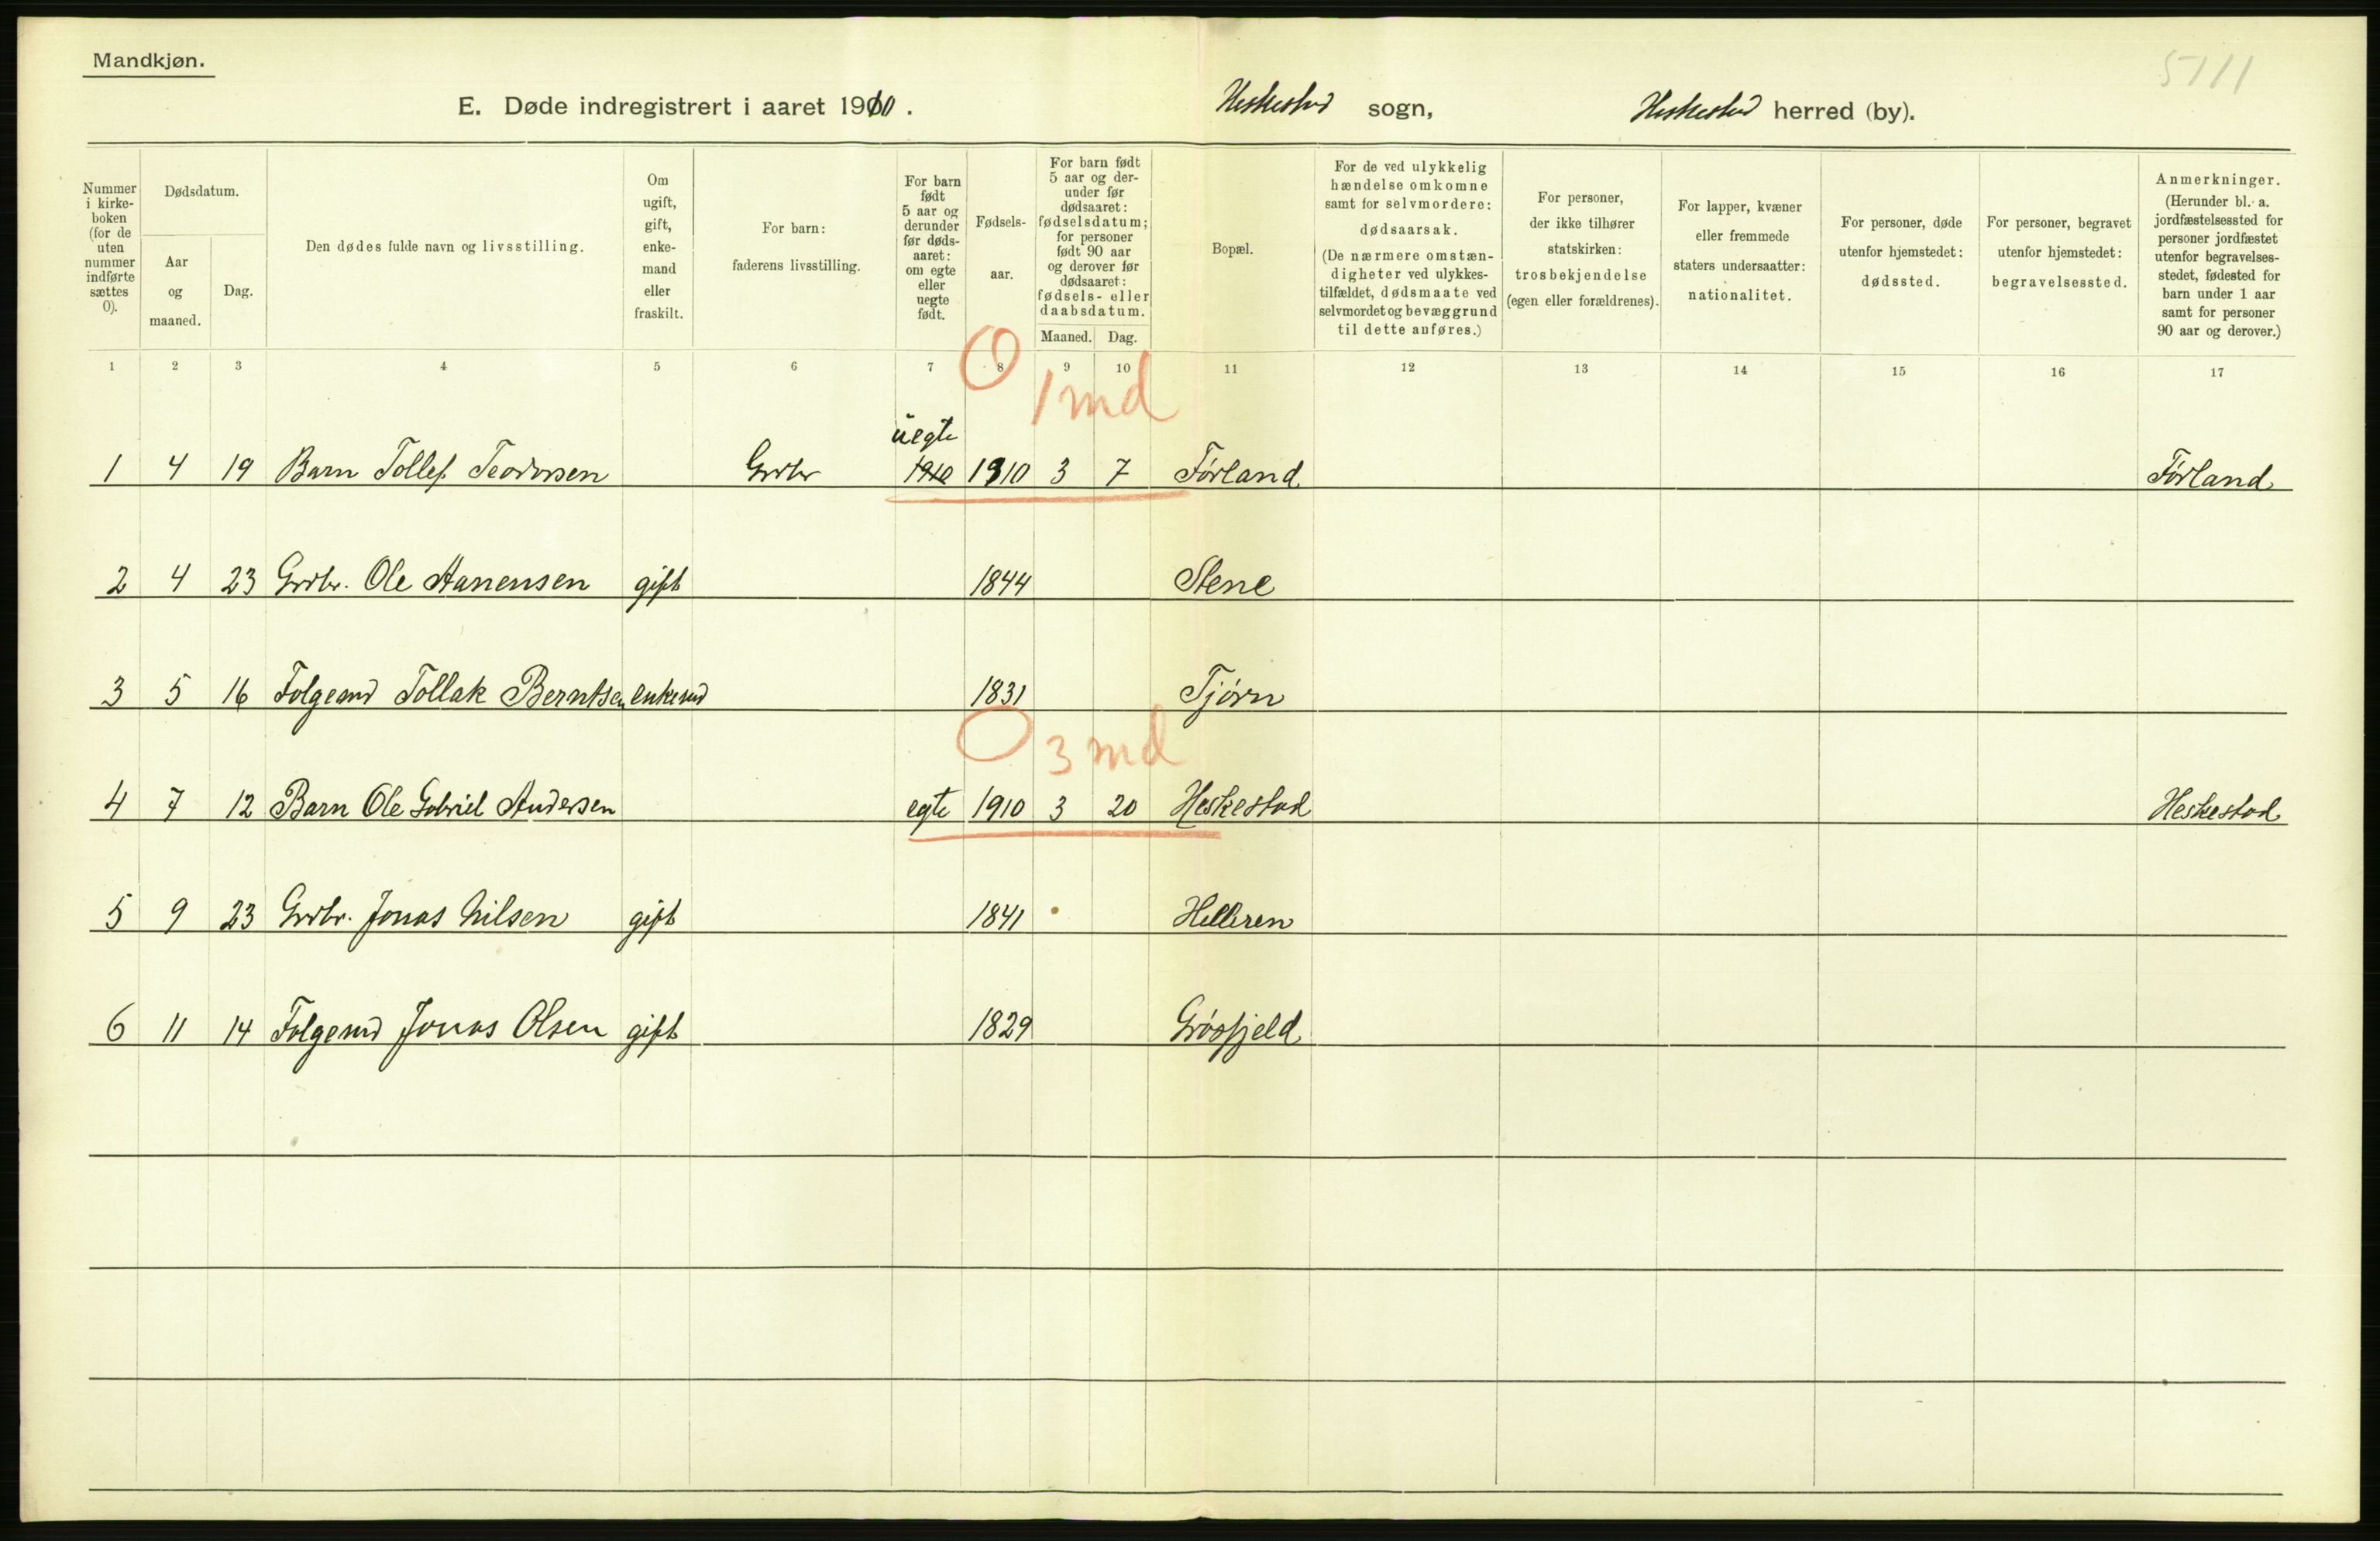 Mandkjøn.
5111
E. Døde indregistrert i aaret 1910. Heskestad sogn, Heskestad herred (by).
Nummer i kirke-boken (for de uten nummer indførte sættes 0).
Dødsdatum.
Aar og maaned.
Dag.
Den dødes fulde navn og livsstilling.
Om ugift, gift, enke-mand eller fraskilt.
For barn: faderens livsstilling.
For barn født 5 aar og derunder før døds-aaret: om egte eller uegte født.
Fødsels-aar.
For barn født 5 aar og der-under før dødsaaret: fødselsdatum; for personer født 90 aar og derover før dødsaaret: fødsels- eller daabsdatum.
Maaned. Dag.
Bopæl.
For de ved ulykkelig hændelse omkomne samt for selvmordere: dødsaarsak. (De nærmere omstæn-digheter ved ulykkes-tilfældet, dødsmaate ved selvmordet og bevæggrund til dette anføres.)
For personer, der ikke tilhører statskirken: trosbekjendelse (egen eller forældrenes).
For lapper, kvæner eller fremmede staters undersaatter: nationalitet.
For personer, døde utenfor hjemstedet: dødssted.
For personer, begravet utenfor hjemstedet: begravelsessted.
Anmerkninger. (Herunder bl. a. jordfæstelsessted for personer jordfæstet utenfor begravelses-stedet, fødested for barn under 1 aar samt for personer 90 aar og derover.)
1 2 3 4 5 6 7 8 9 10 11 12 13 14 15 16 17
0 1 md
uegte
1 4 19 Barn Tollef Teodorsen Grdbr 1910 1910 3 7 Førland Førland
2 4 23 Grdbr. Ole Aanensen gift 1844 Stene
3 5 16 Folgemd Tollak Berntsen enkemd 1831 Tjørn
0 3 md
4 7 12 Barn Ole Gabriel Andersen egte 1910 3 20 Heskestad Heskestad
5 9 23 Grdbr. Jonas Nilsen gift 1841 Helleren
6 11 14 Folgemd Jonas Olsen gift 1829 Grøsfjeld